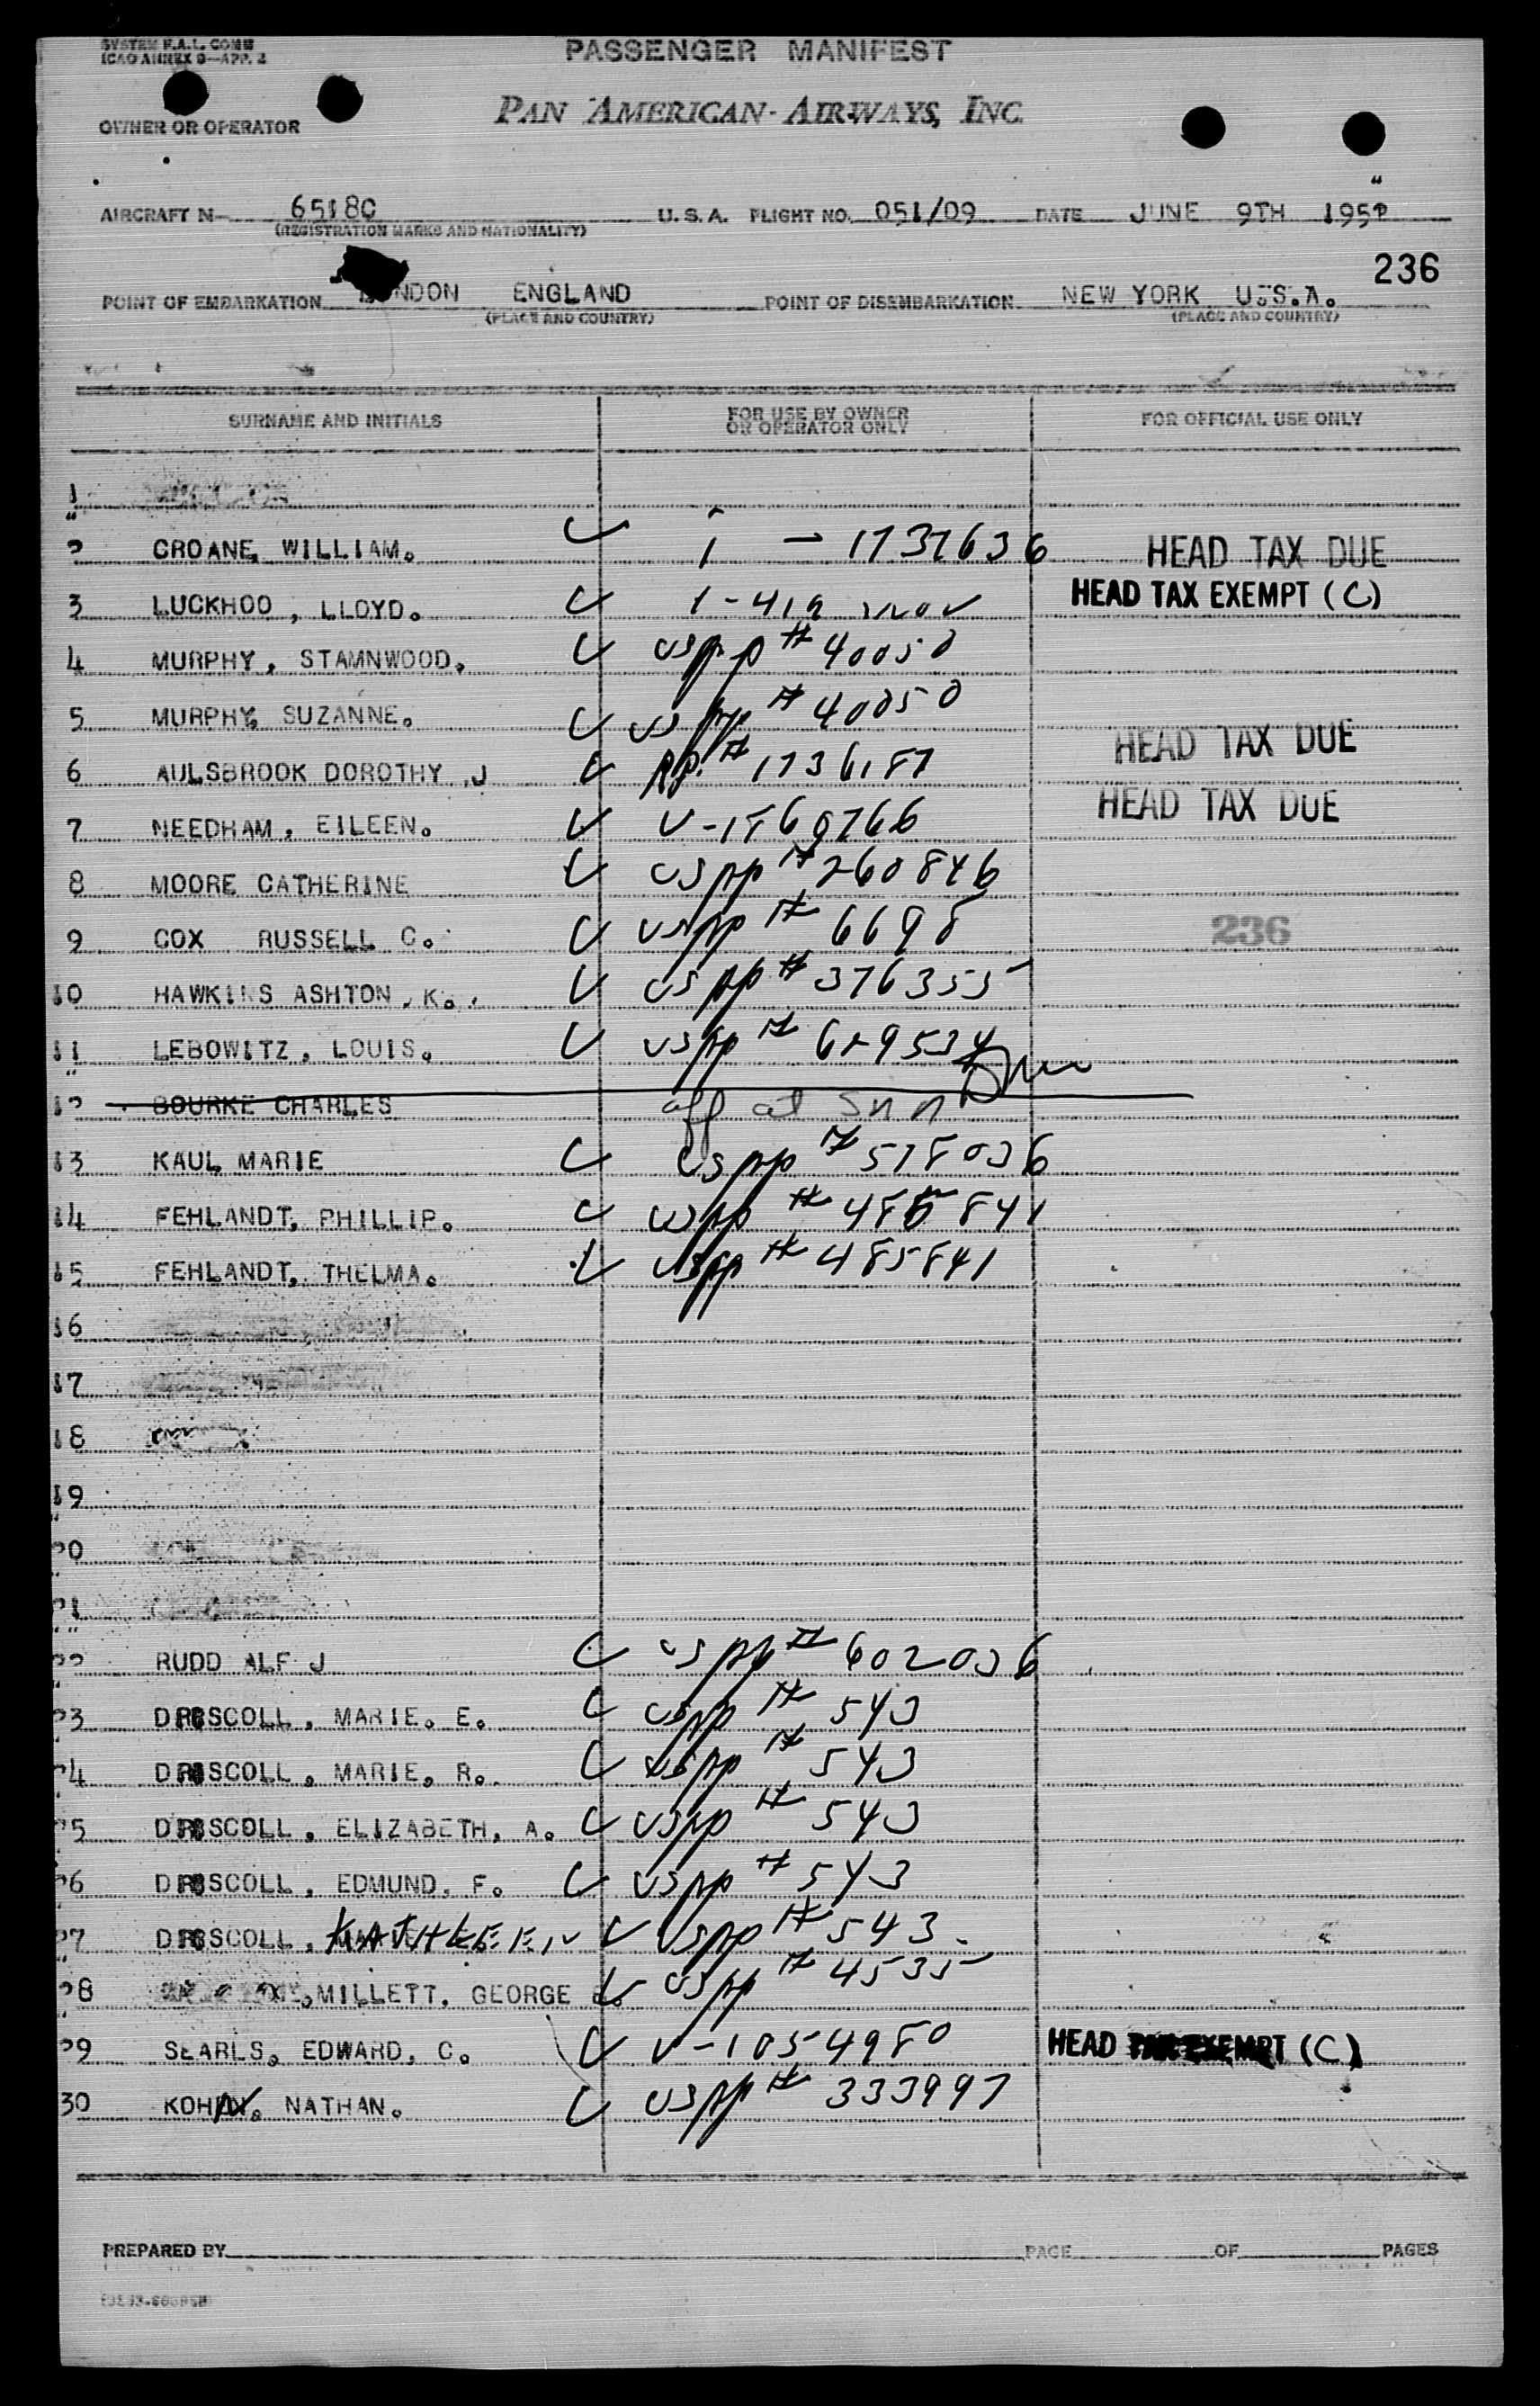 SYSTEM F.A.L. COMM
ICAO ANNEX 9—APP. 2
PASSENGER MANIFEST
PAN AMERICAN AIRWAYS, INC.
OWNER OR OPERATOR
AIRCRAFT N— 6518C U. S. A. FLIGHT NO. 051/09 DATE JUNE 9TH 195
(REGISTRATION MARKS AND NATIONALITY)
236
POINT OF EMBARKATION LONDON ENGLAND POINT OF DISEMBARKATION NEW YORK U.S.A.
(PLACE AND COUNTRY) (PLACE AND COUNTRY)
SURNAME AND INITIALS FOR USE BY OWNER OR OPERATOR ONLY FOR OFFICIAL USE ONLY
1
2 CROANE, WILLIAM. 1 - 1737636 HEAD TAX DUE
3 LUCKHOO, LLOYD. 1-419 HEAD TAX EXEMPT (C)
4 MURPHY, STAMNWOOD. uspp # 40050
5 MURPHY, SUZANNE. uspp # 40050
HEAD TAX DUE
6 AULSBROOK DOROTHY .J P.P. # 1736187
7 NEEDHAM, EILEEN. V-1860766 HEAD TAX DUE
8 MOORE CATHERINE uspp # 260846
9 COX RUSSELL C. uspp # 6698 236
10 HAWKINS ASHTON, K. uspp # 376355
11 LEBOWITZ, LOUIS. uspp # 629534
12 BOURKE CHARLES off at Snn
13 KAUL MARIE uspp # 578036
14 FEHLANDT, PHILLIP. uspp # 485841
15 FEHLANDT, THELMA. uspp # 485841
16
17
18
19
20
21
22 RUDD ALF J uspp # 602036
23 DRISCOLL, MARIE. E. uspp # 543
24 DRISCOLL, MARIE, R. uspp # 543
25 DRISCOLL, ELIZABETH, A. uspp # 543
26 DRISCOLL, EDMUND, F. uspp # 543
27 DRISCOLL, KATHLEEN uspp # 543
28 MILLETT, GEORGE uspp # 45355
29 SEARLS, EDWARD, C. V-1054980 HEAD TAX EXEMPT (C)
30 KOHN, NATHAN. uspp # 333997
PREPARED BY PAGE OF PAGES